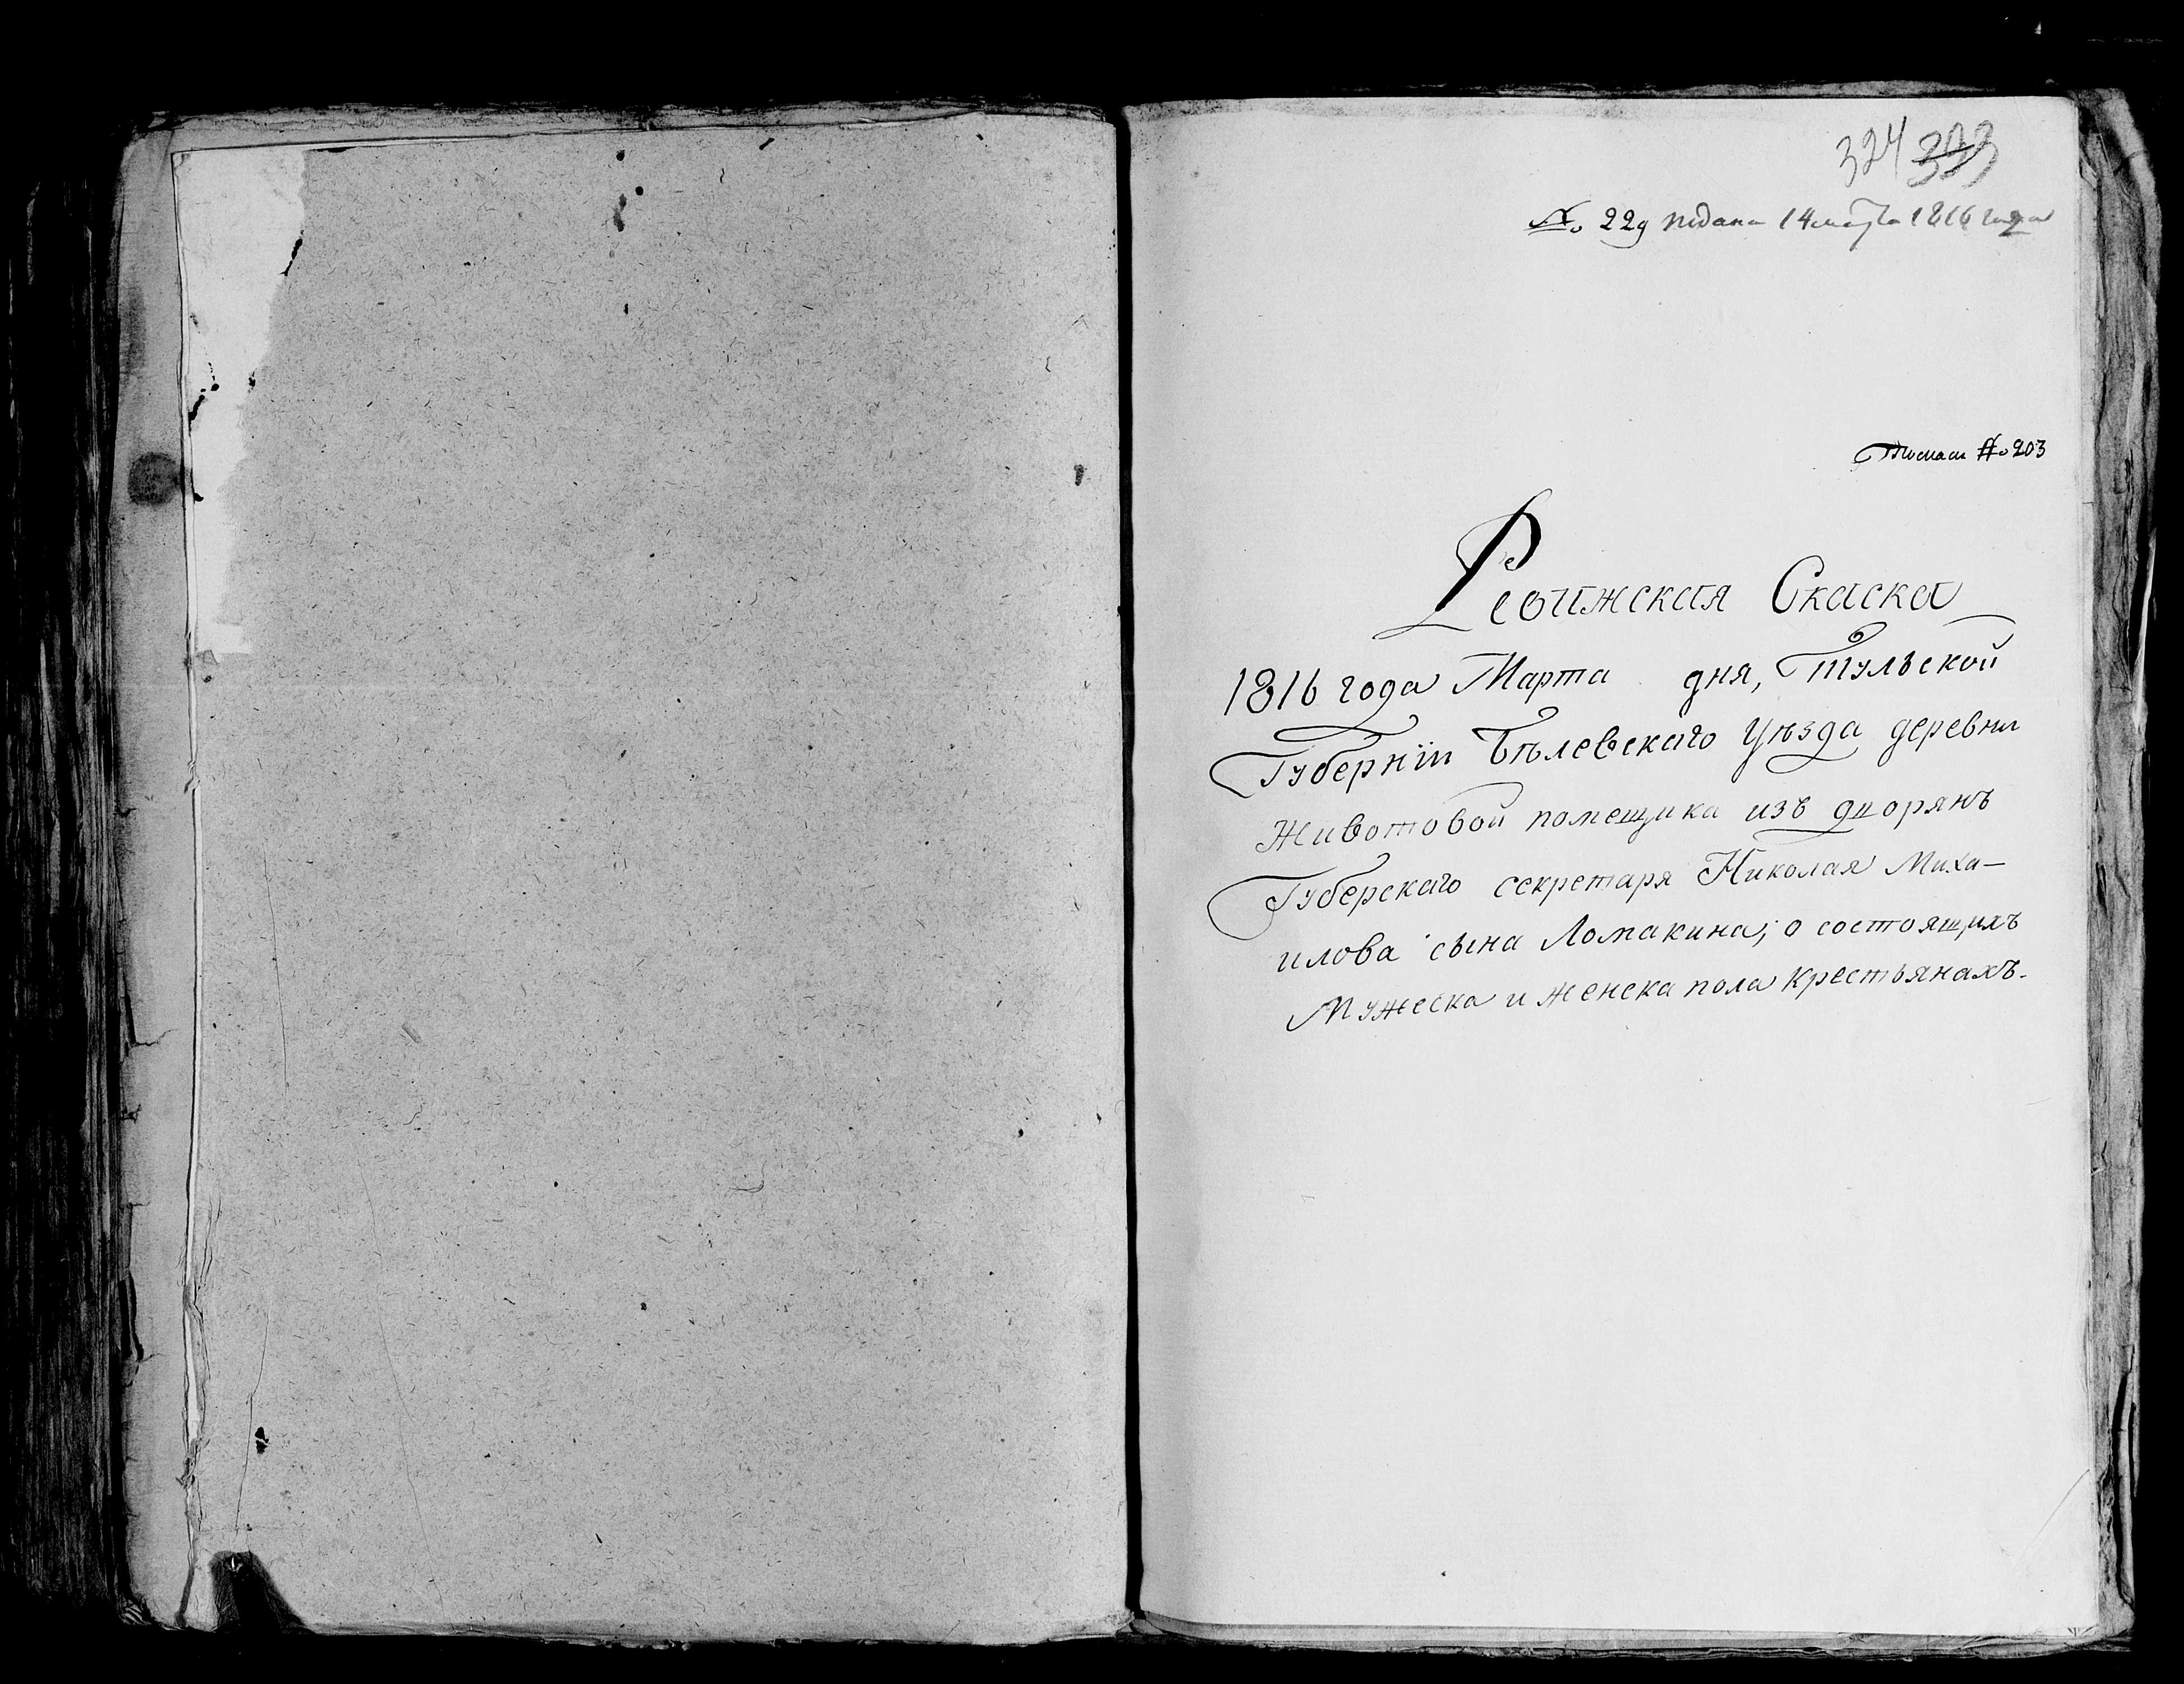 324 393
№ 229 подана 14 марта 1816 года
№ 203
Ревижская Скаска
1816 года Марта дня, Тульской
Губерніи Бѣлевскаго Уѣзда деревни
Животовой помещика изъ дворянъ
Губерскаго секретаря Николая Миха–
илова сына Ломакина; о состоящихъ
Мужеска и женска пола крестьянахъ.